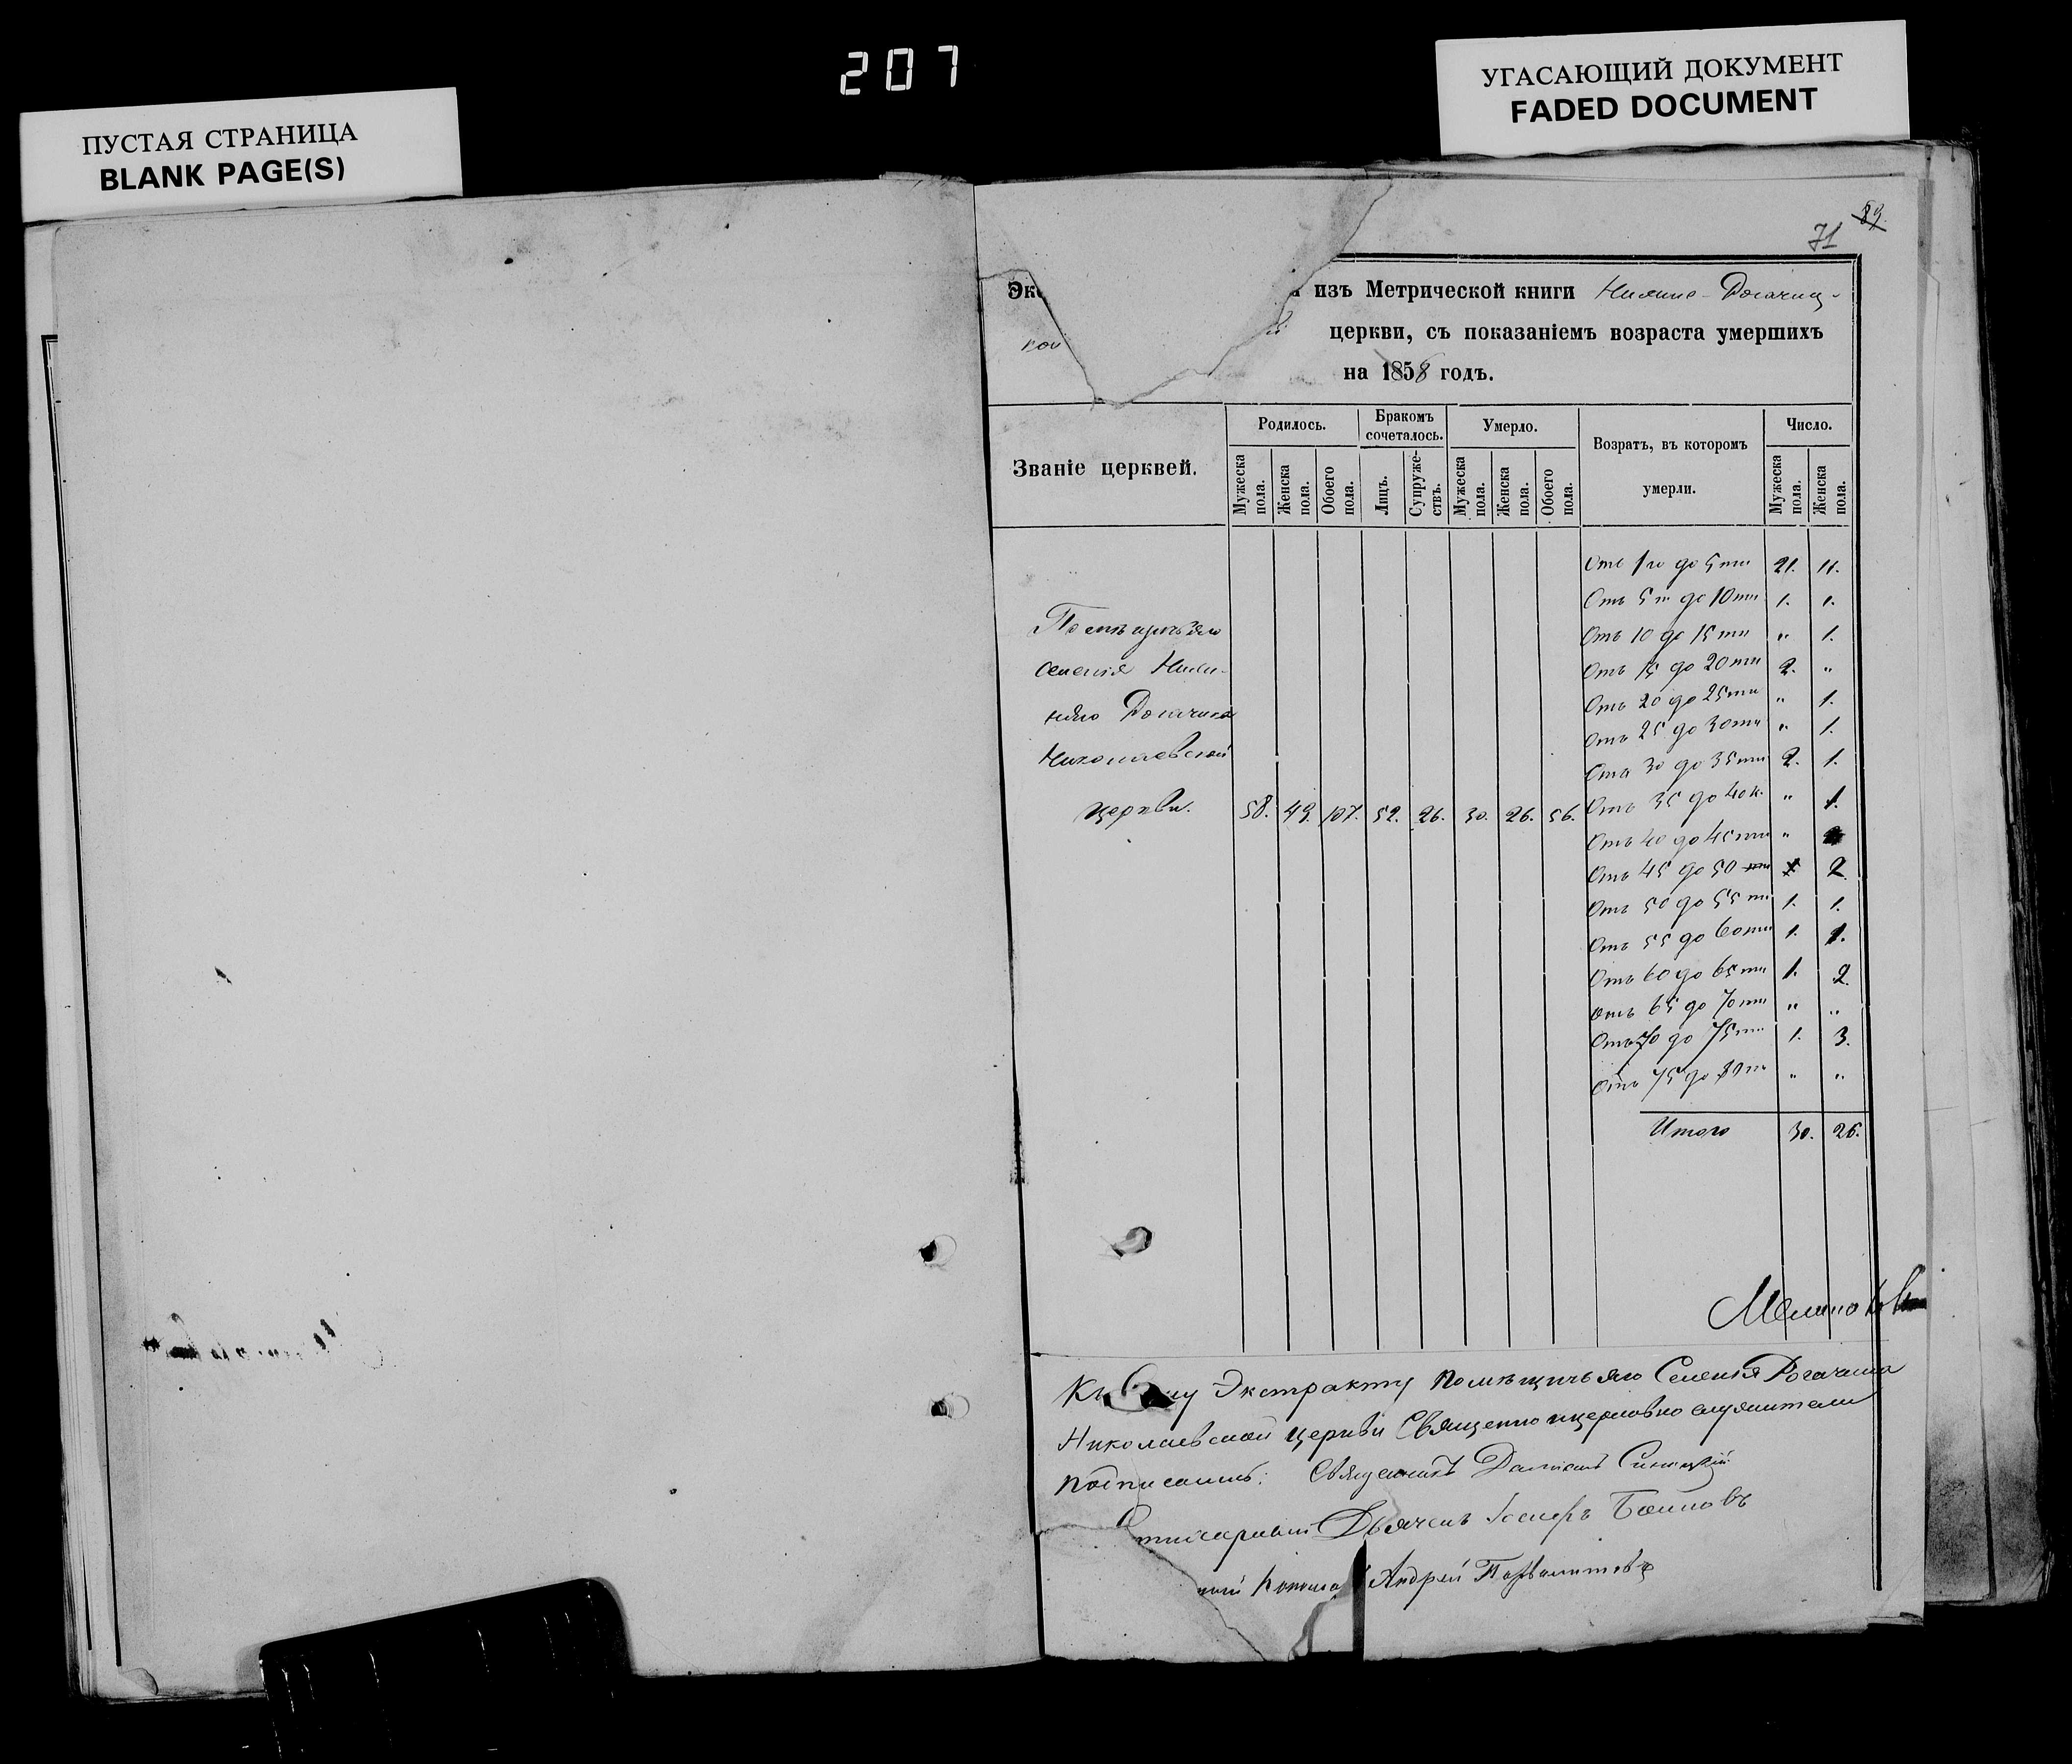 207
ПУСТАЯ СТРАНИЦА
BLANK PAGE(S)
УГАСАЮЩИЙ ДОКУМЕНТ
FADED DOCUMENT
89.
71
Эк из Метрической книги Нижне-Рогачиц-
кой церкви, съ показаніемъ возраста умершихъ
на 1858 годъ.
Званіе церквей.
Родилось.
Бракомъ сочеталось.
Умерло.
Возратъ, въ которомъ умерли.
Число.
Мужеска пола.
Женска пола.
Обоего пола.
Лицъ.
Супружествъ.
Мужеска пола.
Женска пола.
Обоего пола.
Мужеска пола.
Женска пола.
Помѣщичьяго
селенія Ниж-
няго Рогачика
Николаевской
церкви. 58. 49. 107. 52. 26. 30. 26. 56.
Отъ 1го до 5ти 21. 11.
Отъ 5ти до 10ти 1. 1.
Отъ 10 до 15ти " 1.
Отъ 15 до 20ти 2. "
Отъ 20 до 25ти " 1.
Отъ 25 до 30ти " 1.
Отъ 30 до 35ти 2. 1.
Отъ 35 до 40к. " 1.
Отъ 40 до 45ти "
Отъ 45 до 50 2.
Отъ 50 до 55ти 1. 1.
Отъ 55 до 60ти 1. 1.
Отъ 60 до 65ти 1. 2.
Отъ 65 до 70ти " "
Отъ 70 до 75ти 1. 3.
Отъ 75 до 80ти " "
Итого 30. 26.
Къ Экстракту Помѣщичьяго Селенія Рогачика
Николаевской церкви Священно и церковно служители
подписались: Священникъ
Дьячекъ
Андрей